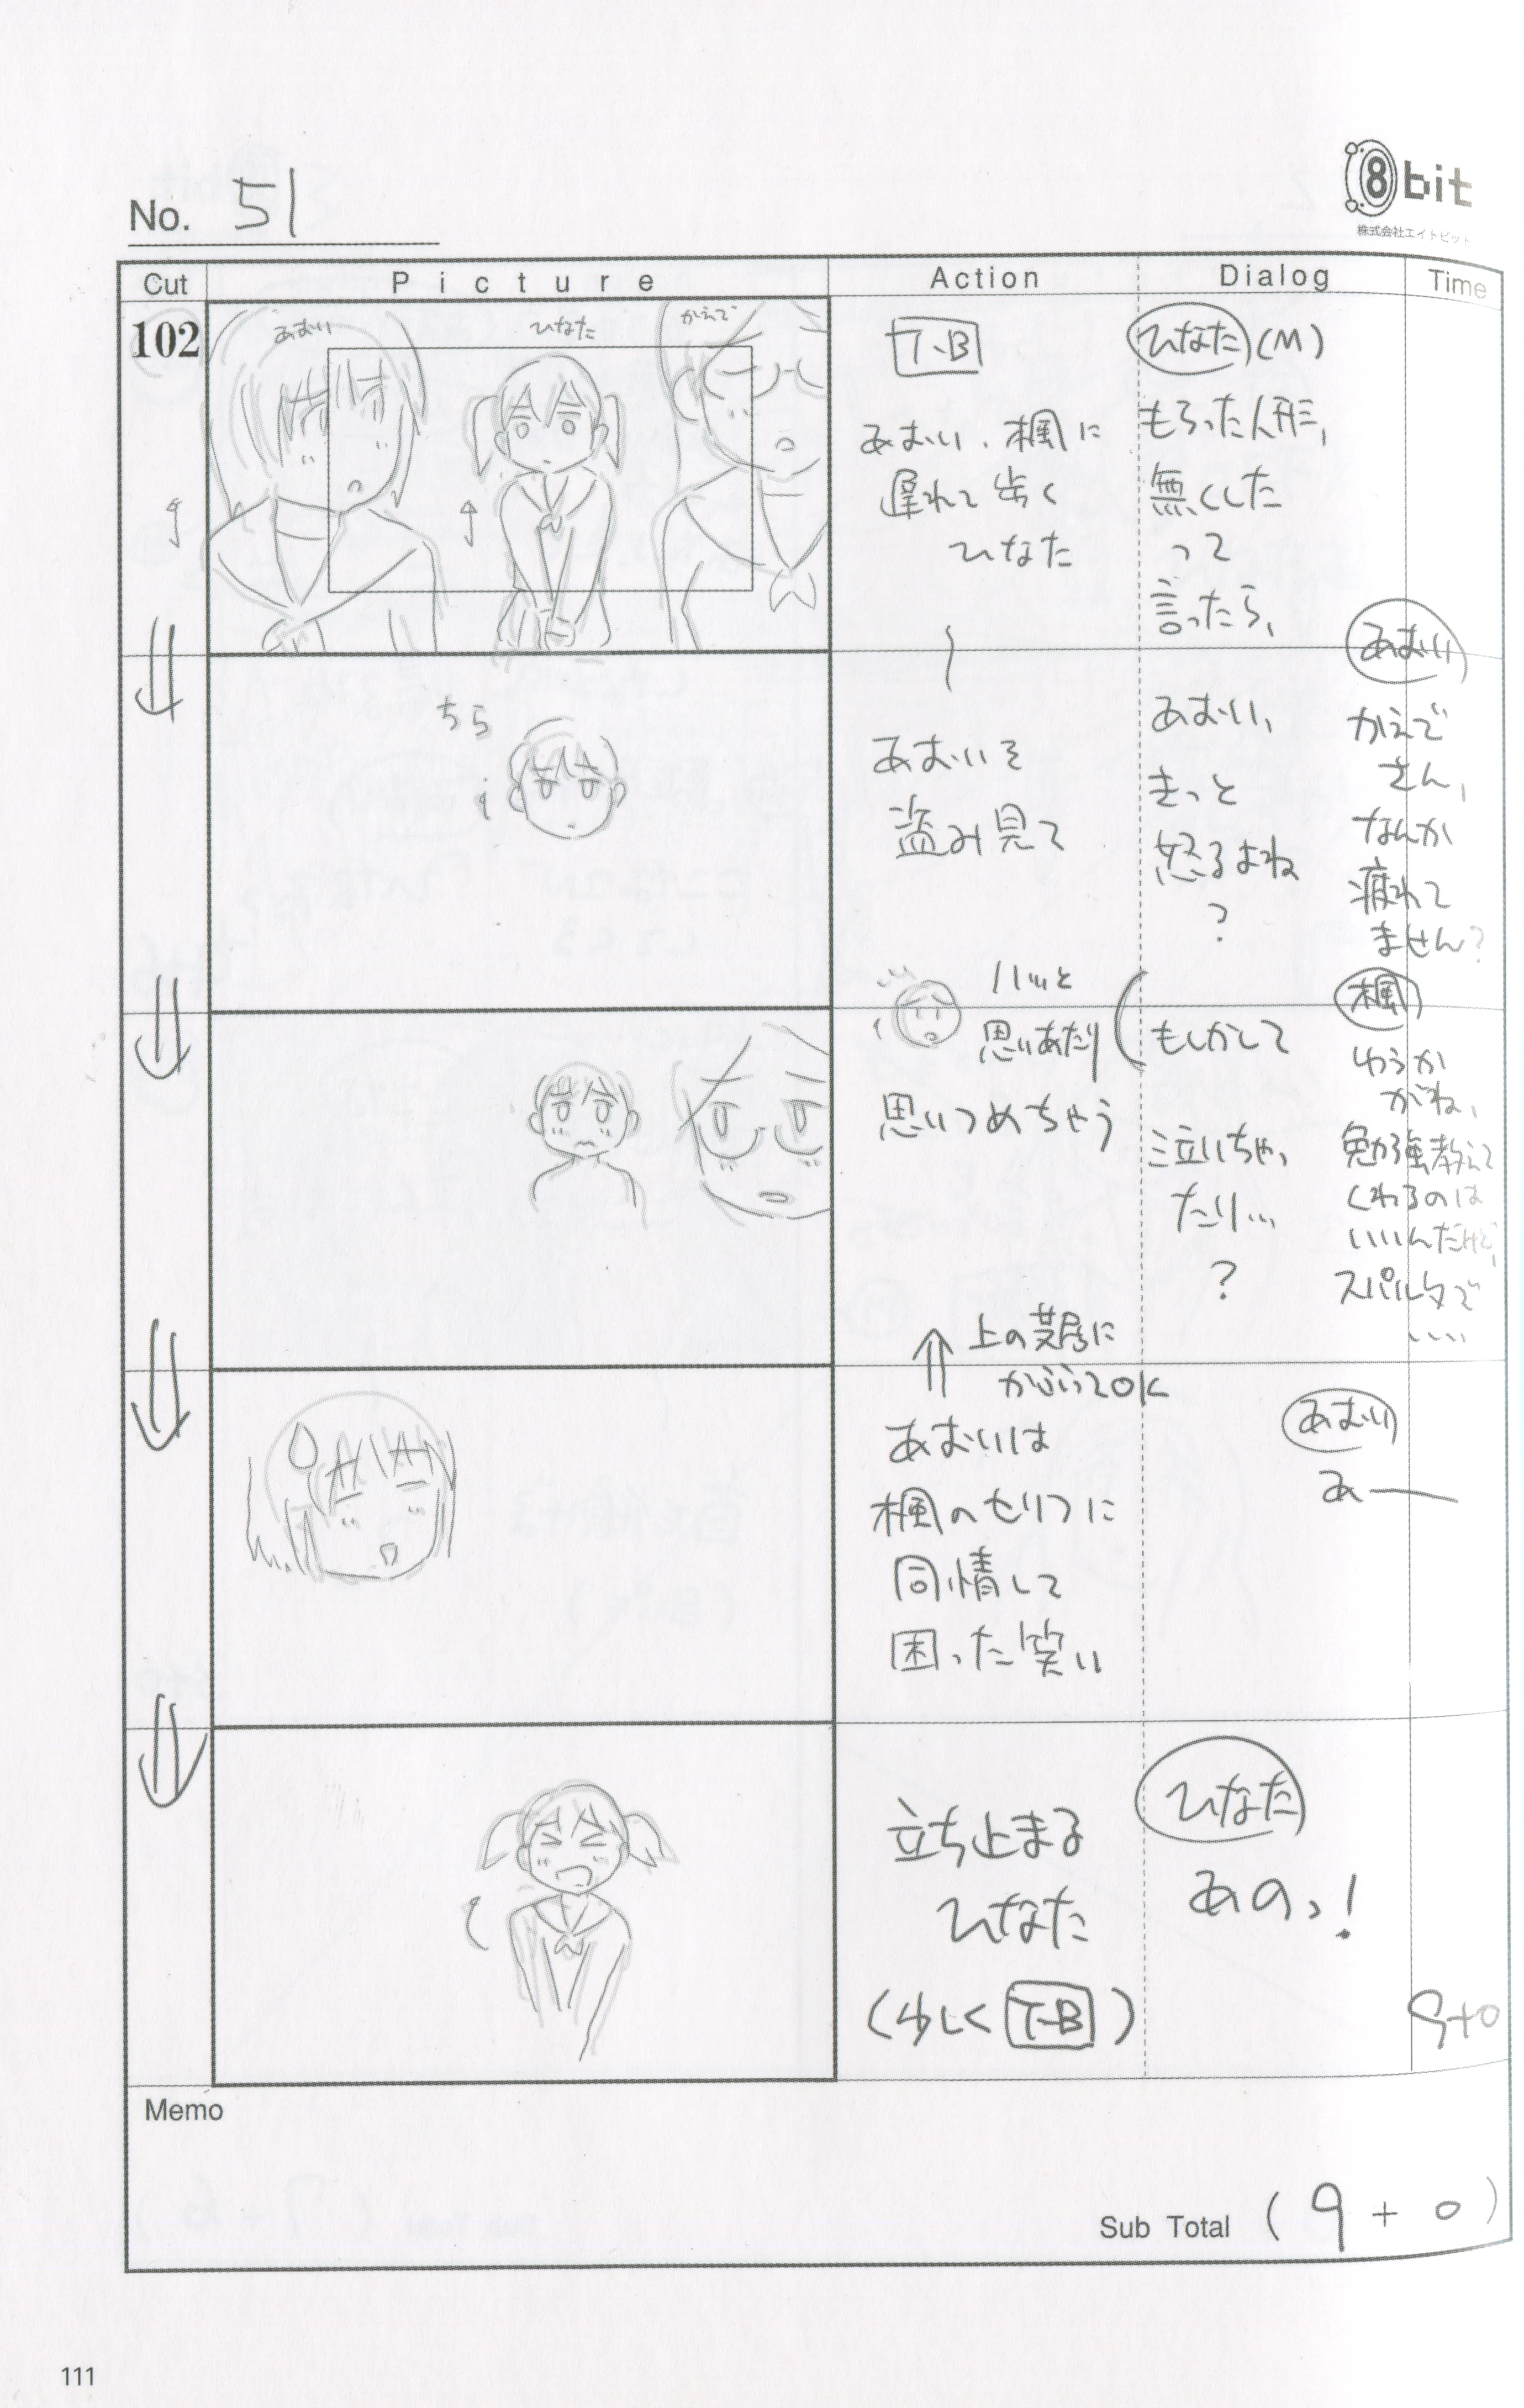 8bit
株式会社エイトビット
No. 51
Cut
Picture
Action
Dialog
Time
102
あおい
ひなた
かえで
T.B
あおい、楓に
遅れて歩く
ひなた
ひなた(M)
もらった人形、
無くした
って
言ったら、
ちら
あおいを
盗み見て
あおい、
きっと
怒るよね
?
あおい
かえで
さん、
なんか
疲れて
ません?
ハッと
思いあたり
思いつめちゃう
もしかして
泣いちゃっ
たり…
?
楓
ゆうか
がね、
勉強教えて
くれるのは
いいんだけど、
スパルタで
……
上の芝居に
かぶってOK
あおいは
楓のセリフに
同情して
困った笑い
あおい
あー
立ち止まる
ひなた
(少しくT.B)
ひなた
あのっ!
9+0
Memo
Sub Total (9+0)
111